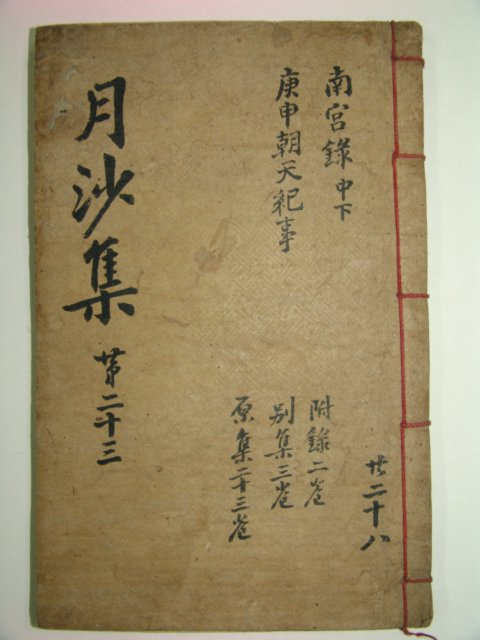 月沙集 苐二十三
南宮錄 中下
庚申朝天紀事
附錄二卷
別集三卷
原集二十三卷
共二十八